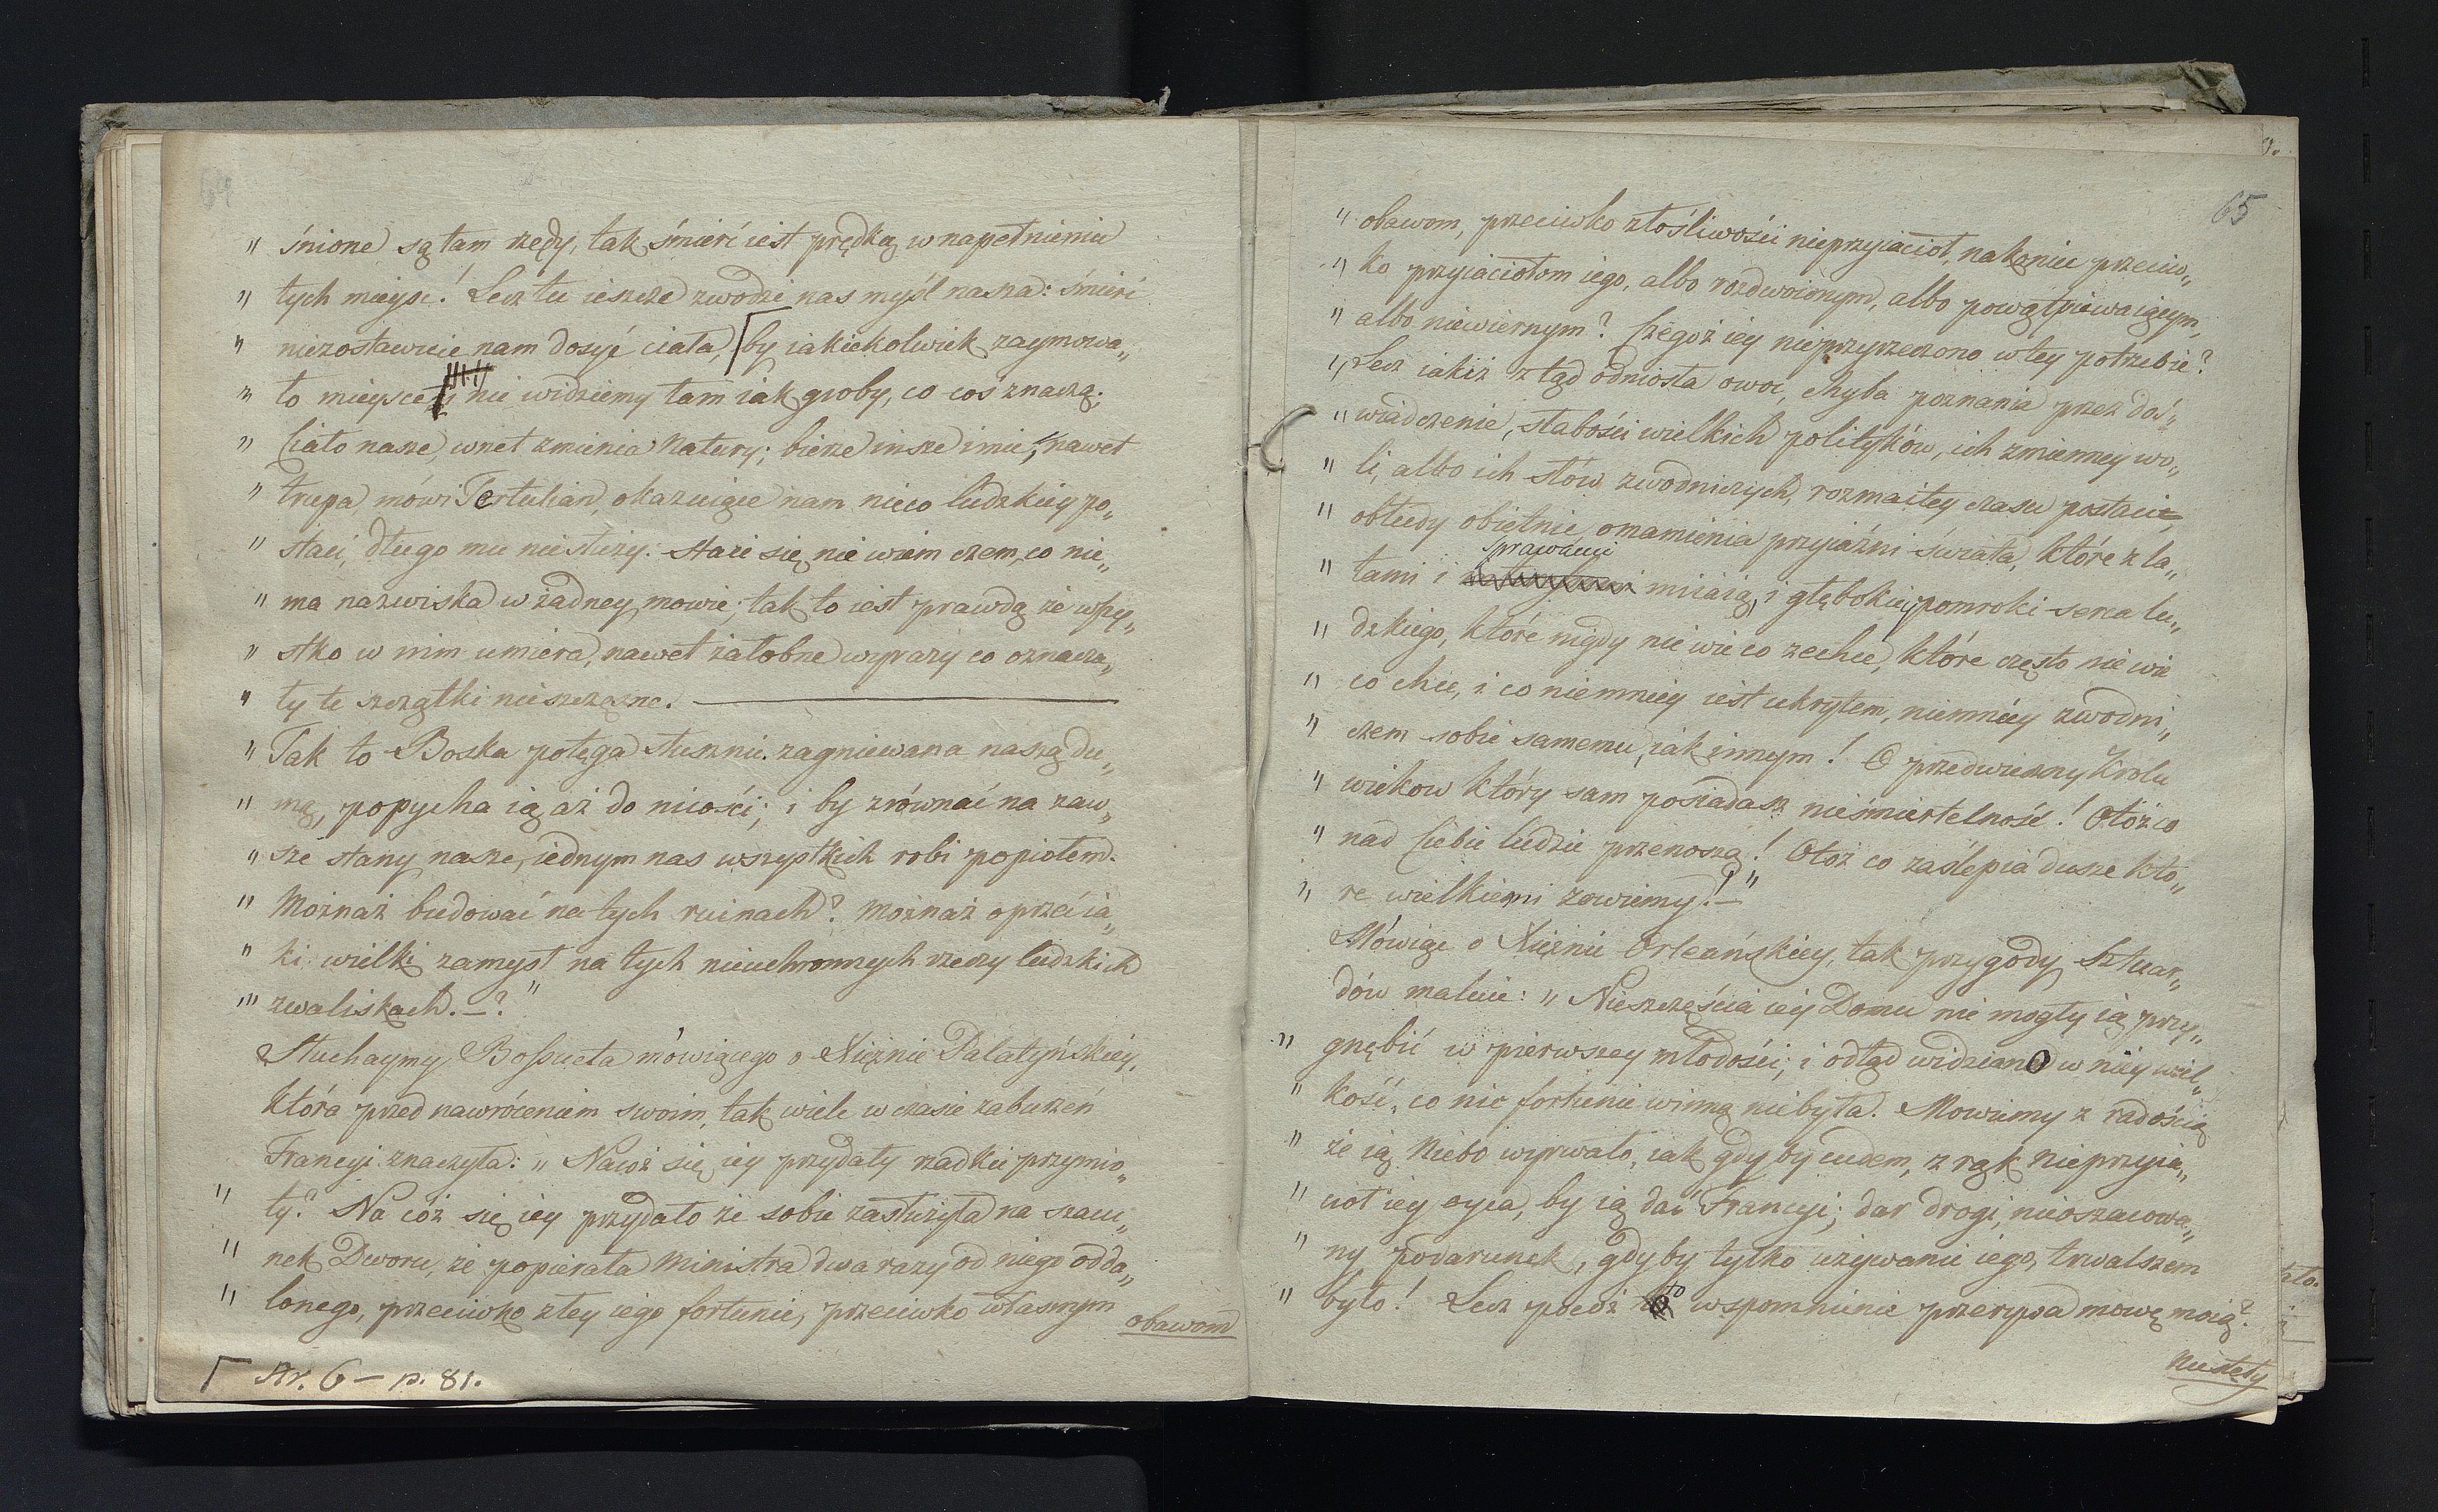 64
„ śnione są tam rzędy, tak śmierć iest prędką w napełnieniu
„ tych mieysc! Lecz tu ieszcze zwodzi nas myśl nasza: śmierć
„ niezostawuie nam dosyć ciała, by iakiekolwiek zaymowa„
„ ło mieysce, nie widziemy tam iak groby, co coś znaczą;
„ Ciało nasze, wnet zmienia Natury; bierze insze imie, nawet
„ trupa, mówi Tertulian, okazuiące nam nieco ludzkiey po„
„ staci, długo mu nie służy: staie się, nie wiem czem, co nie„
„ ma nazwiska w żadney mowie; tak to iest prawdą że wszy„
„ stko w nim umiera, nawet żałobne wyrazy co oznacza„
„ ły te szczątki nieszczęsne.
„ Tak to Boska potęga słusznie zagniewana naszą du„
„ mą, popycha ią aż do nicości; i by zrównać na zaw„
„ sze stany nasze, iednym nas wszystkich robi popiołem.
„ Możnaż budować na tych ruinach? Możnaż oprzeć ia„
„ ki wielki zamysł na tych nieuchronnych rzeczy ludzkich
„ zwaliskach. — ?"
Słuchaymy Bossueta mówiącego o Xiężnie Palatyńskiéy,
która przed nawróceniem swoim, tak wiele w czasie zaburzeń
Francyi znaczyła: „ Nacóż się iey przydały rzadkie przymio„
„ ty? Na cóż się iey przydało że sobie zasłużyła na szacu„
„ nek Dworu, że popierała Ministra dwa razy od niego odda„
„ lonego, przeciwko złey iego fortunie, przeciwko własnym
obawom
Str. 6 — p. 81.
65
„ obawom, przeciwko złośliwości nieprzyiaciół, nakoniec przeciw„
„ ko przyiaciołom iego, albo rozdwoionym, albo powątpiewaiącym,
„ albo niewiernym? Czegoż iey nieprzyrzeczono w tey potrzebie?
„ Lecz iakiż ztąd odniosła owoc, chyba poznania przez doś„
„ wiadczenie, słabości wielkich polityków, ich zmienney wo„
„ li, albo ich słów zwodniczych, rozmaitey czasu postaci,
„ obłudy obietnic, omamienia przyiaźni świata, które z la„
sprawami
„ tami i miiaią, i głębokiey pomroki serca lu„
„ dzkiego, które nigdy nie wie co zechce, które często nie wie
„ co chce, i co niemniey iest ukrytem, niemniéy zwodni„
„ czem sobie samemu, iak innym! O przedwieczny Krolu
„ wiekow który sam posiadasz nieśmiertelność! Otóż co
„ nad Ciebie ludzie przenoszą! Otoż co zaślepia dusze któ„
„ re wielkiemi zowiemy! —"
Mówiąc o Xiężnie Orleańskiey, tak przygody Sztuar„
dów maluie: „ Nieszczęścia iey Domu nie mogły ią przy„
„ gnębić w pierwszey młodości; i odtąd widziano w niéy wiel„
„ kość, co nic fortunie winną niebyła. Mowiemy z radością
„ że ią Niebo wyrwało, iak gdyby cudem, z rąk nieprzyia„
„ ciół iey oyca, by ią dać Francyi; dar drogi, nieoszacowa„
„ ny podarunek, gdyby tylko używanie iego, trwalszem
„ było! Lecz pocóż to wspomnienie przerywa mowę moią?
Niestety